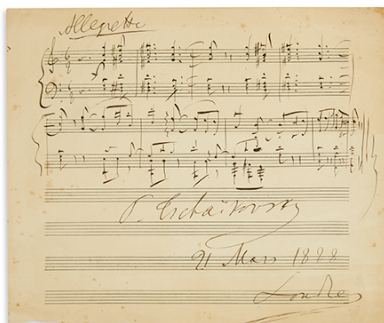 Allegretto
P. Tschaïkovsky
21 Mars 1888
Londres